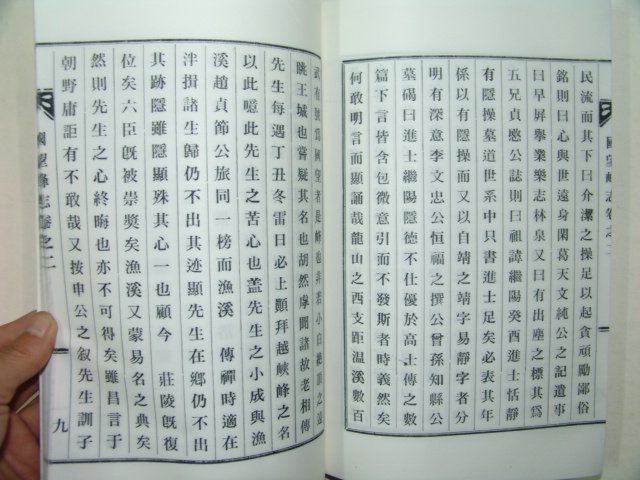 民流而其下曰介潔之操足以起貪頑勵鄙俗
銘則曰心與世遠身閑葛天文純公之記遺事
曰早屏擧業樂志林泉又曰有出塵之標其爲
五兄貞愍公誌則曰祖諱繼陽癸酉進士恬靜
有隱操墓道世系中只書進士足矣必表其年
係以有隱操而又以自靖之靖字易靜字者分
明有深意李文忠公恒福之撰公曾孫知縣公
墓碣曰進士繼陽隱德不仕優於高士傳之數
篇下言皆含包微意引而不發斯者時義然矣
何敢明言而顯誦哉龍山之西支距溫溪數百
武有號爲國望者是峰也非若小白絶頂之遠
眺王城也嘗疑其名也胡然得聞諸故老相傳
先生每遇丁丑冬雷日必上顚拜越峽峰之名
以此噫此先生之苦心也盖先生之小成與漁
溪趙貞節公旅同一榜而漁溪 傳禪時適在
泮揖諸生歸仍不出其迹顯先生在鄉仍不出
其跡隱雖隱顯殊其心一也顧今 莊陵旣復
位矣六臣旣被崇奬矣漁溪又蒙易名之典矣
然則先生之心終晦也亦不可得矣雖昌言于
朝野庸詎有不敢哉又按申公之叙先生訓子
國望峰志卷之二
九